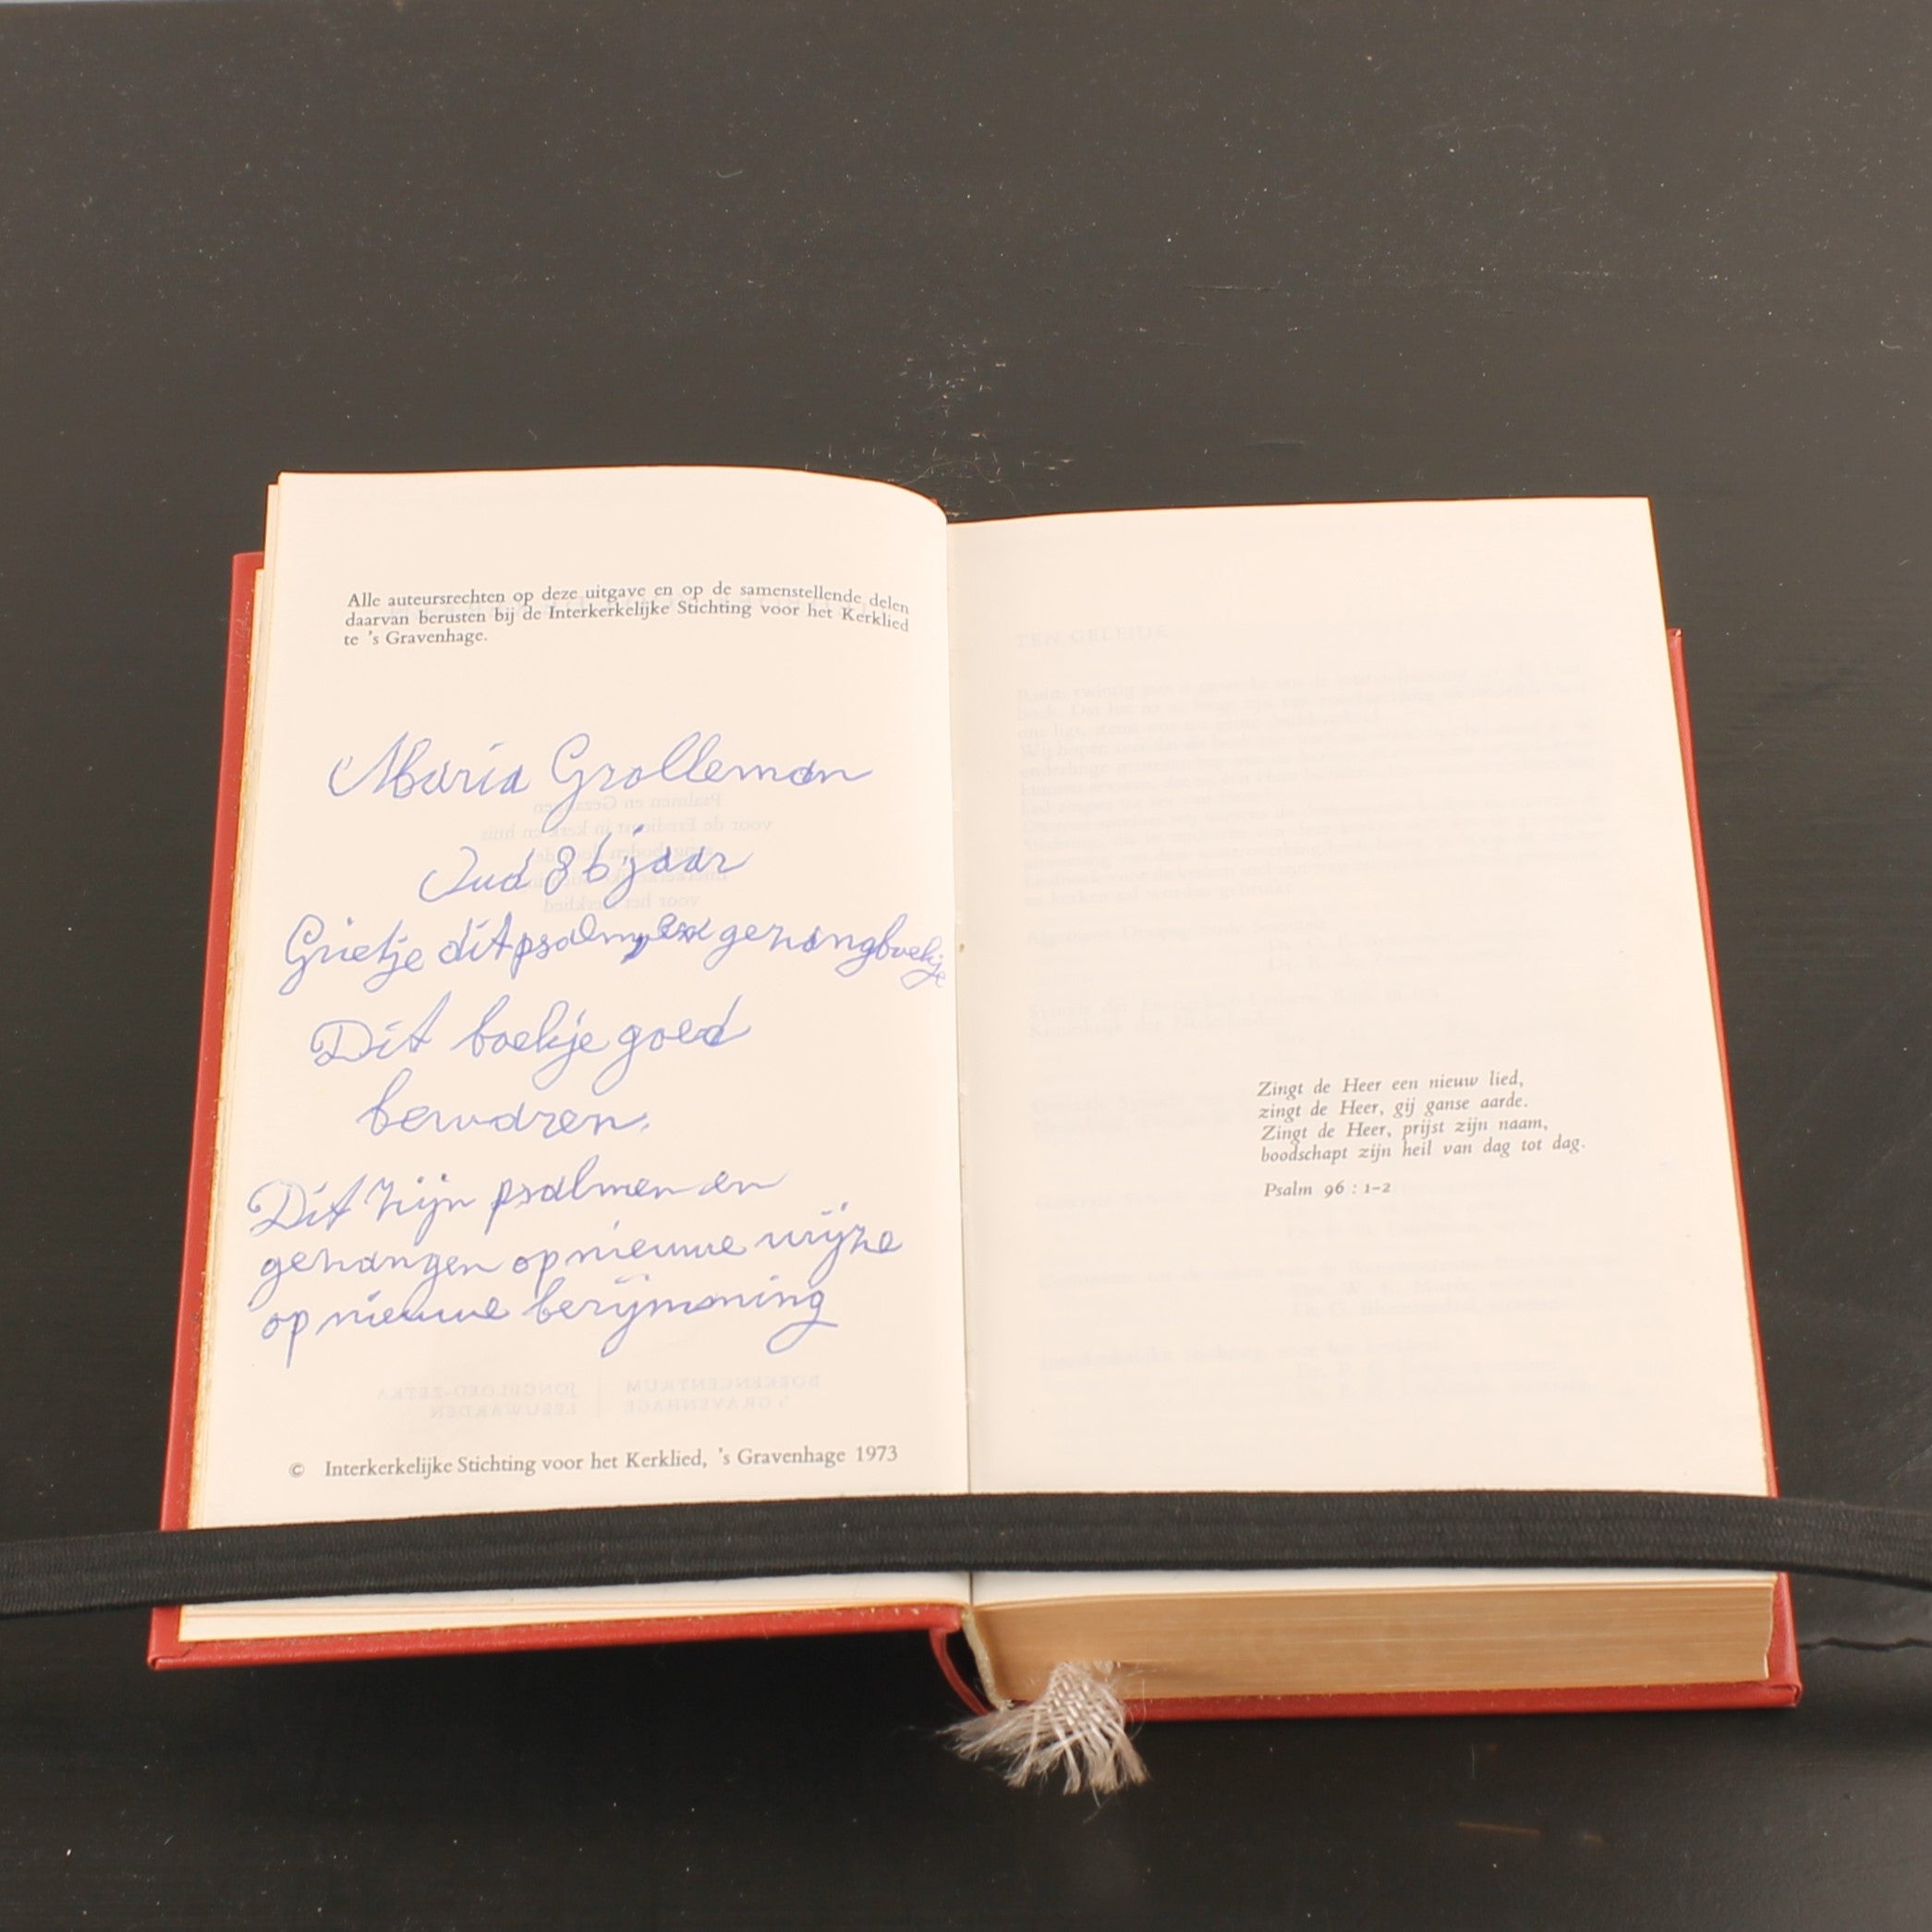 Alle auteursrechten op deze uitgave en op de samenstellende delen
daarvan berusten bij de Interkerkelijke Stichting voor het Kerklied
te 's Gravenhage.
Maria Grolleman
Oud 86 jaar
Grietje dit psalm en gezangboekje
Dit boekje goed
bewaren.
Dit zijn psalmen en
gezangen op nieuwe wijze
op nieuwe berijmming
© Interkerkelijke Stichting voor het Kerklied, 's Gravenhage 1973
Zingt de Heer een nieuw lied,
zingt de Heer, gij ganse aarde.
Zingt de Heer, prijst zijn naam,
boodschapt zijn heil van dag tot dag.
Psalm 96 : 1-2